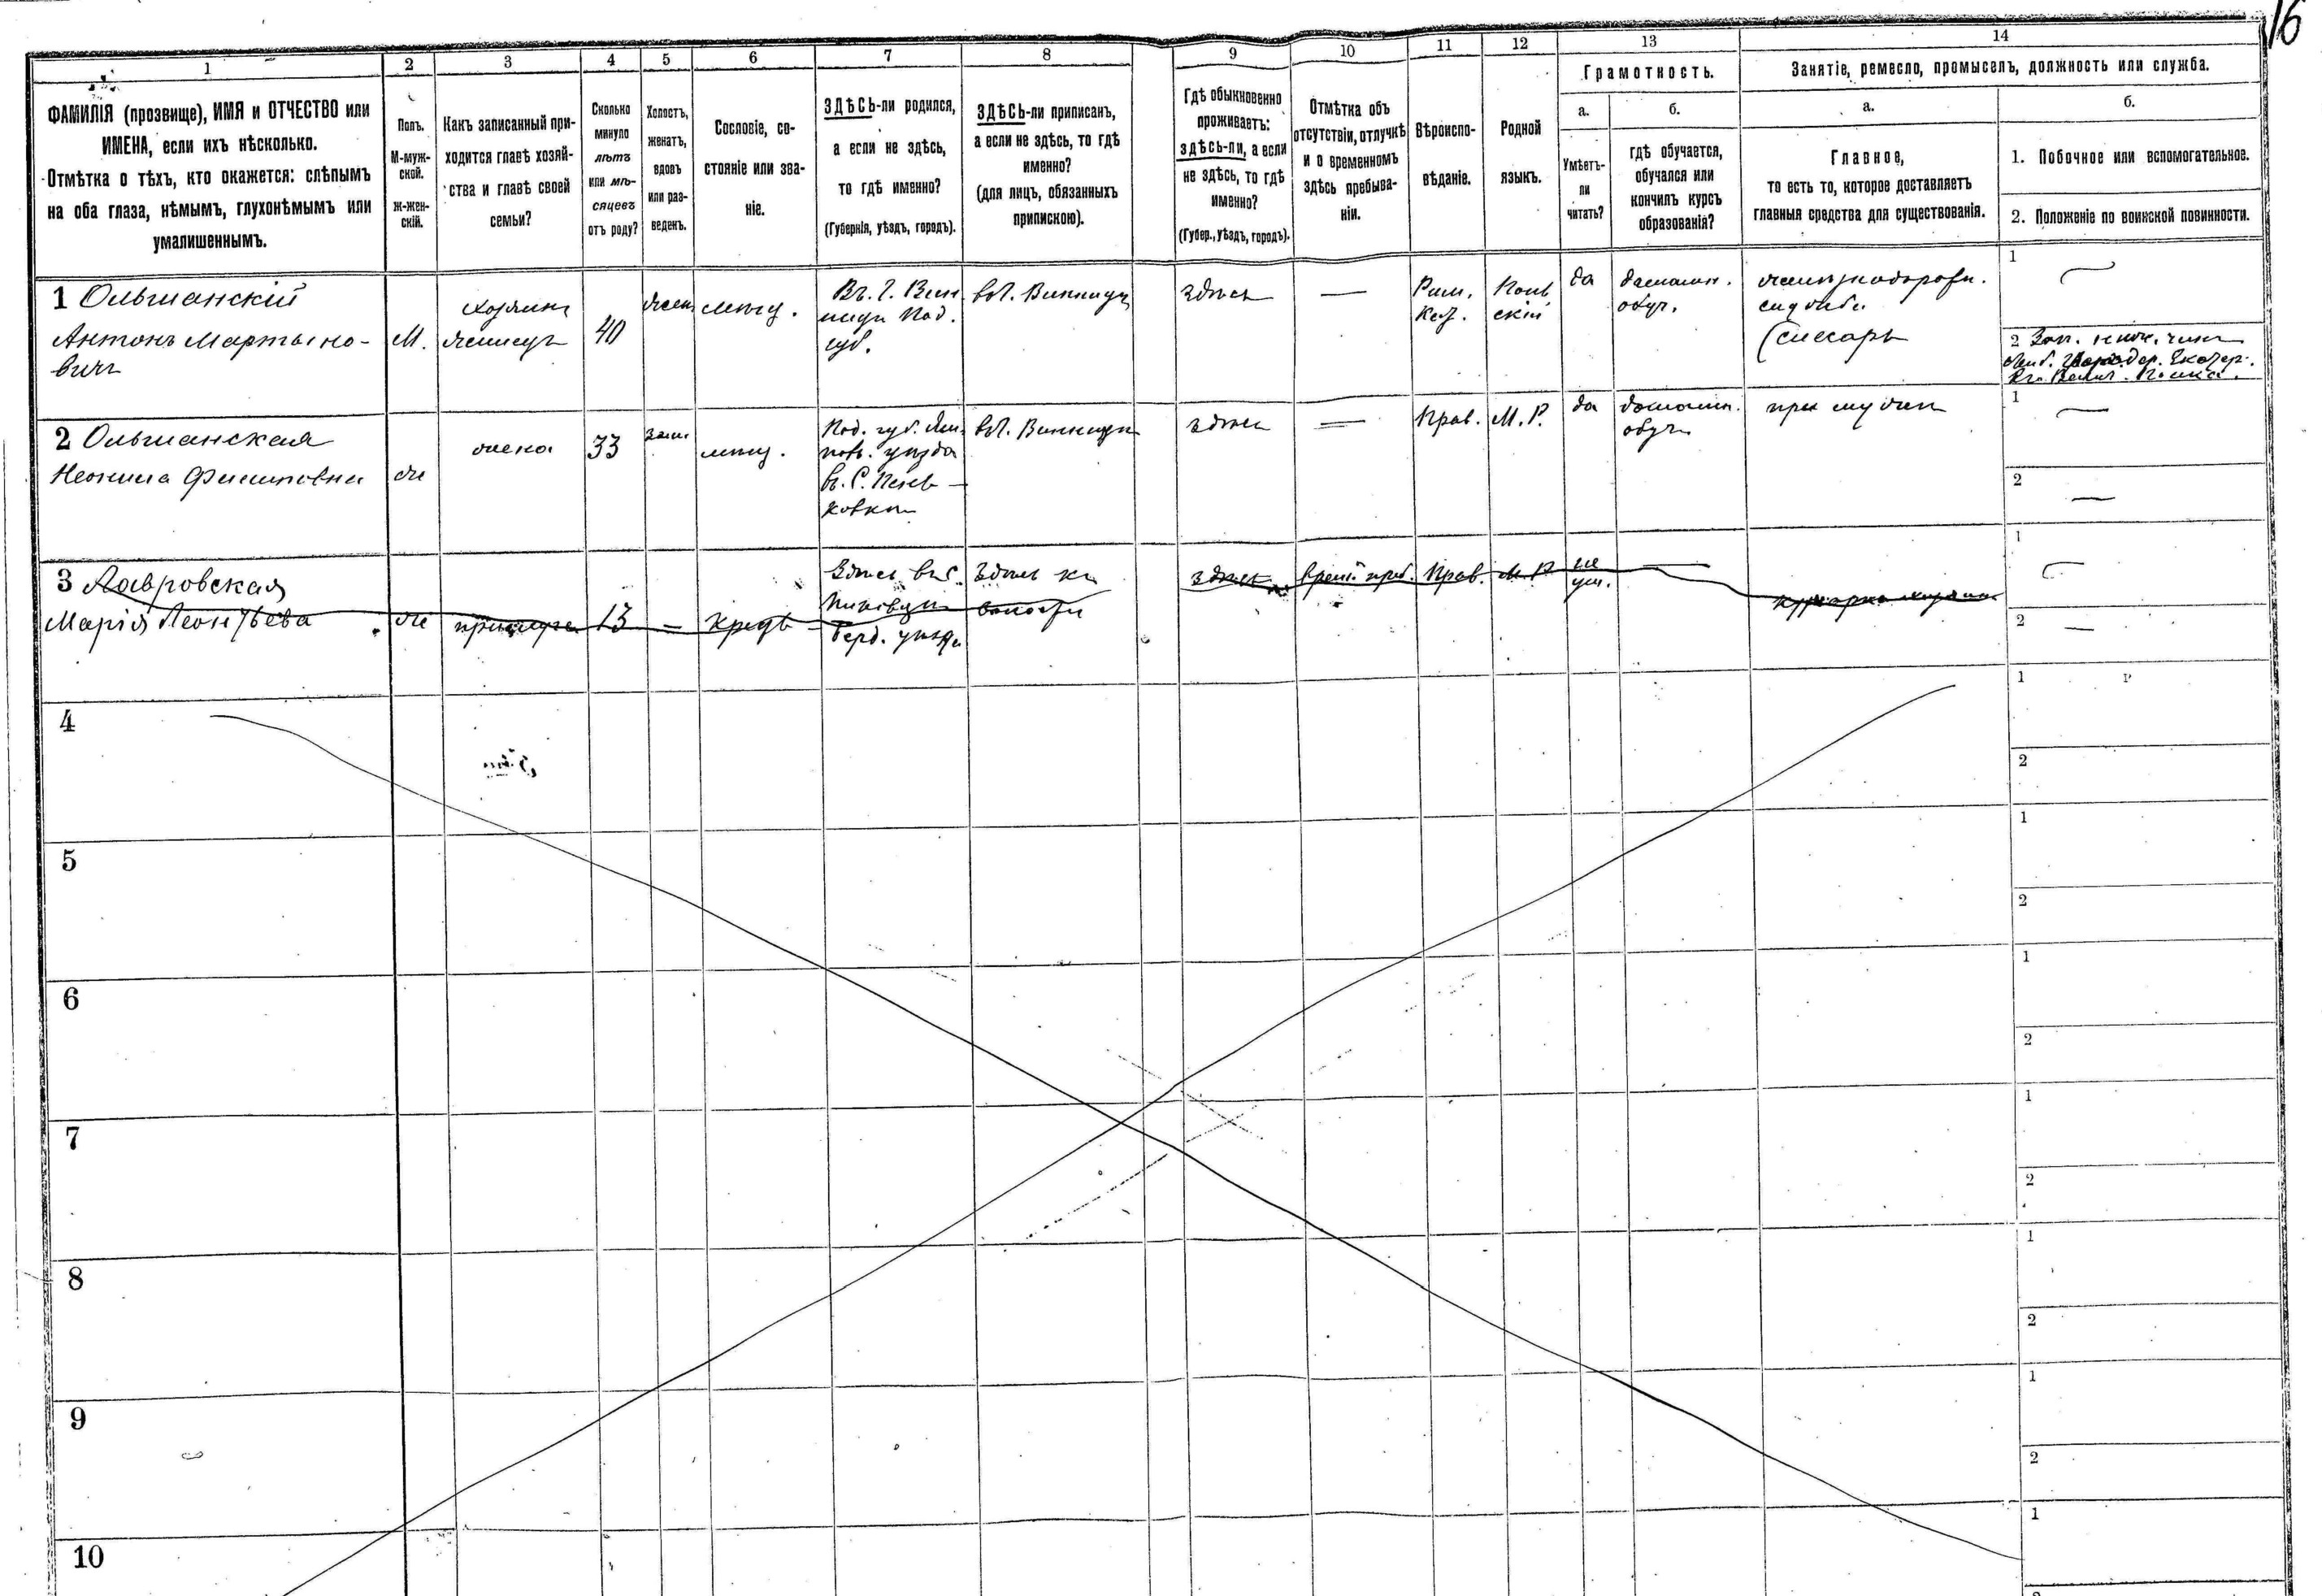 16
1
2
3
4
5
6
7
8
9
10
11
12
13
14
ФАМИЛІЯ (прозвище), ИМЯ и ОТЧЕСТВО или
ИМЕНА, если ихъ нѣсколько.
Отмѣтка о тѣхъ, кто окажется: слѣпымъ
на оба глаза, нѣмымъ, глухонѣмымъ или
умалишеннымъ.
Полъ.
М-муж-
ской.
ж-жен-
скій.
Какъ записанный при-
ходится главѣ хозяй-
ства и главѣ своей
семьи?
Сколько
минуло
лѣтъ
или мѣ-
сяцевъ
отъ роду?
Холостъ,
женатъ,
вдовъ
или раз-
веденъ.
Сословіе, со-
стояніе или зва-
ніе.
ЗДѢСЬ-ли родился,
а если не здѣсь,
то гдѣ именно?
(Губернія, уѣздъ, городъ).
ЗДѢСЬ-ли приписан,
а если не здѣсь, то гдѣ
именно?
(для лицъ, обязанныхъ
припискою).
Гдѣ обыкновенно
проживаетъ:
здѣсь-ли, а если
не здѣсь, то гдѣ
именно?
(Губер., уѣздъ, городъ).
Отмѣтка объ
отсутствіи, отлучкѣ
и о временномъ
здѣсь пребыва-
ніи.
Вѣроиспо-
вѣданіе.
Родной
языкъ.
Грамотность.
а.
Умѣетъ-
ли
читать?
б.
гдѣ обучается,
обучался или
кончилъ курсъ
образованія?
Занятіе, ремесло, промыселъ, должность или служба.
а.
Главное,
то есть то, которое доставляетъ
главныя средства для существованія.
б.
1. Побочное или вспомогательное.
2. Положеніе по воинской повинности.
1 Ольшанскій
Антонъ Мартыно-
вичъ
М.
хозяинъ
40
жен
мѣщ.
Въ. г. Вин
ницѣ Под.
губ.
въ г. Винницѣ
здѣсь
—
Рим.
Кат.
Поль
скій
да
домашн.
обуч.
желѣзнодорожн.
служба
(слесарь
1
2 Зап.
2 Ольшанская
Филиповна
ж
жена
33
зам
мѣщ.
Под. губ.
уѣзда
въ. С.
въ г. Винницѣ
здѣсь
—
Прав.
М. Р.
да
домашн.
обуч.
при мужѣ
1
2
3 Лавровская
Марія Леонтьева
ж
прислуга
13
—
Здѣсь въ с.
Берд. уѣзда
Здѣсь къ
волости
здѣсь
врем. преб.
Прав.
М. Р.
не
ум.
—
1
2
4
1
2
5
1
2
6
1
2
7
1
2
8
1
2
9
1
2
10
1